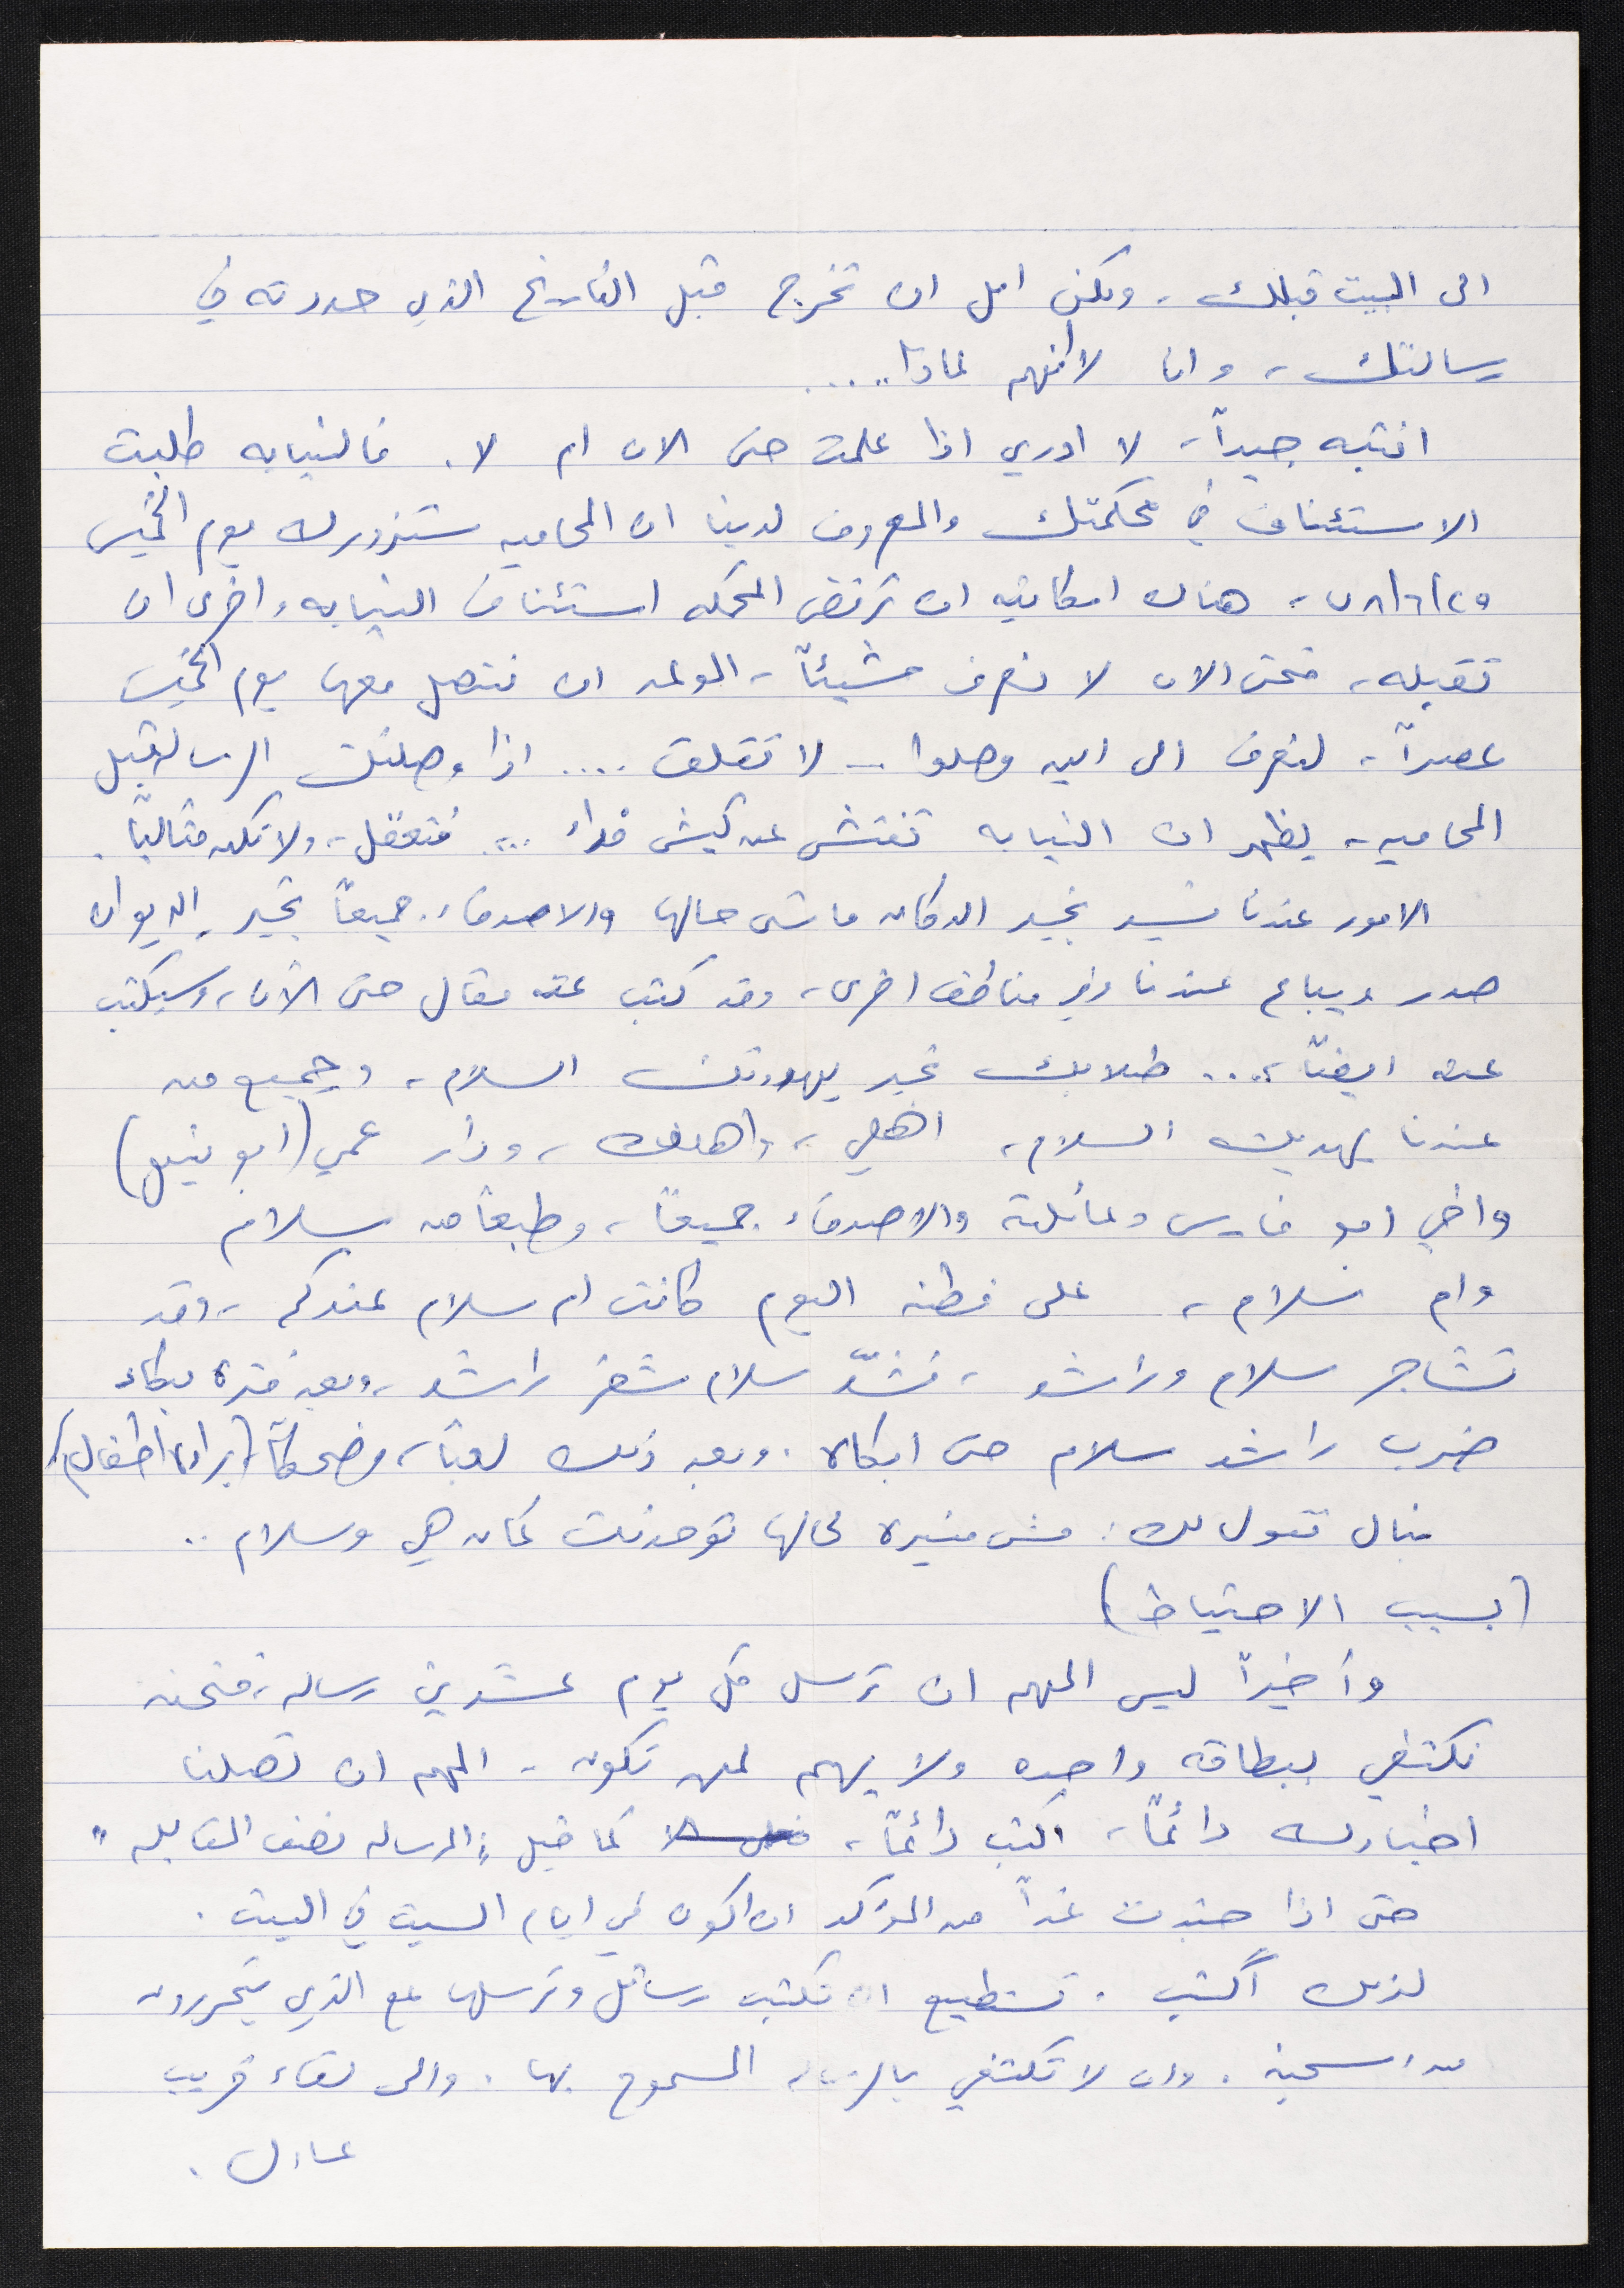 الى البيت قبلك، ولكن امل ان تخرج قبل التاريخ الذي حددته في
رسالتك، وانا لا افهم لماذا.....
انتبه جيداً، لا ادري اذا علمت حتى الان ام لا. فالنيابه طلبت
الاستئناف في محكمتك والمعروف لدينا ان المحاميه ستزورك يوم الخميس
٧٨/٦/٢٩، هناك امكانيه ان ترفض المحكمه استئناف النيابه، واخرى ان
تقبله، فحتى الان لا نعرف شيئاً، الوعد ان نتصل معها يوم الخميس
عصراً، لنعرف الى اين وصلوا.. لا تقلق .... اذا وصلتك الرساله قبل
المحاميه، يظهر ان النيابه تفتش عن كبش فداء ... فتعقل، ولا تكن مثالياً.
الامور عندنا تسير بخير الدكان ماشي حالها والاصدقاء جميعاً بخير، الديوان
صدر ويباع عندنا وفي مناطق اخرى، وقد كتب عنه مقال حتى الآن، وسيكتب
عنه ايضاً .... طلابك بخير يهدونك السلام، وجميع من
عندنا يهديك السلام، اهلي، واهلك، ودار عمي (ابو نبيل)
واخي ابو فارس وعائلته والاصدقاء جميعاً، وطبعاً من سلام
وام سلام، على فطنه اليوم كانت ام سلام عندكم، وقد
تشاجر سلام وراشد، فشدّ سلام شعر راشد، وبعد فترة بكاء
ضرب راشد سلام حتى ابكاه. وبعد ذلك لعبا، وضحكا (براءة اطفال)
منال تقول لك: مش منيره لحالها توحدنت كمان هي وسلام ..
(بسبب الاحتياط)
وأخيراً ليس المهم ان ترسل كل يوم عشرين رساله، فنحن
نكتفي ببطاقه واحده ولا يهم لمن تكون، المهم ان تصلنا
اخبارك دائماً، اكتب دائماً، كما قيل "الرساله نصف المقابله"
حتى اذا حبست غداً من المؤكد ان اكون في ايام السبت في البيت.
لذلك أكتب. تستطيع ان تكتب رسائل وترسلها مع الذي يتحررون
من السجن. وان لا تكتفي بالرساله المسموح بها. والى لقاء قريب
عادل.